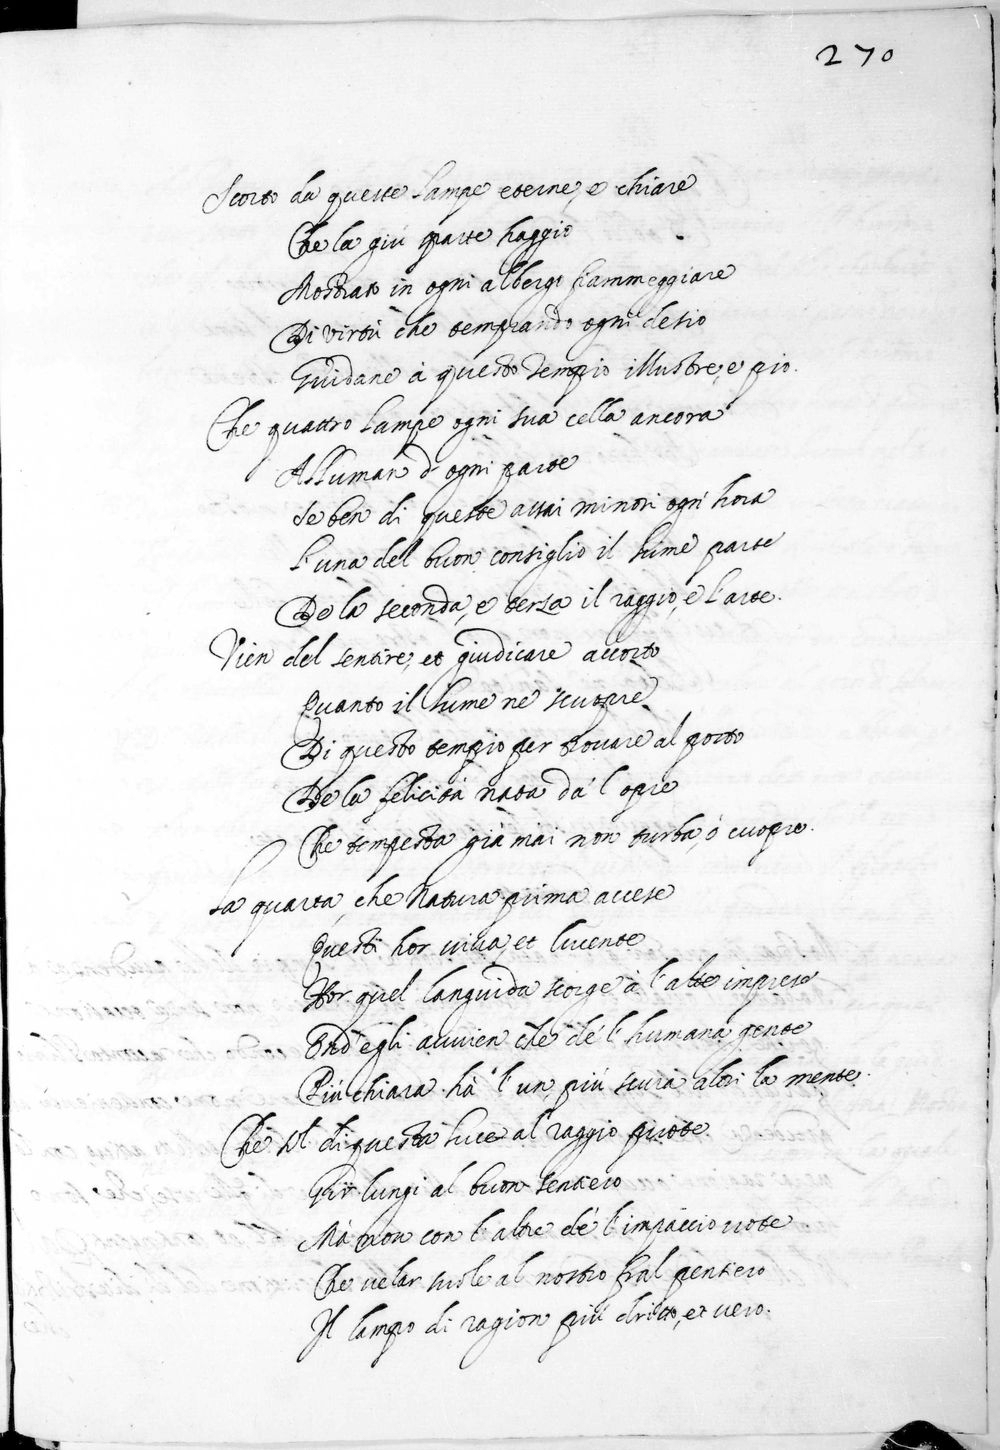 270
Scorto da queste lampe eterne, e chiare
Che la giù parte haggio
Mostrato in ogni albergo fiammeggiare
Di virtù che temprando ogni desio
Guidane à questo Tempio illustre, e pio.
Che quattro lampe ogni sua cella ancora
Alluman d' ogni parte
Se ben di queste assai minori ogn' hora
L' una del buon consiglio il lume parte
De la seconda, e terza il raggio, e l' arte.
Vien del sentire, et giudicare accorto
Quanto il lume ne scuopre
Di questo tempio per trovare al porto
De la felicità nata dà l' opre
Che tempesta già mai non turba, ò cuopre.
La quarta, che Natura prima accese
Questi hor viva, et lucente
Hor quel languida scorge à l' alte imprese
Ond' egli avvien che dè l' humana gente
Più chiara hà l' un, più scura altri la mente.
Che sol di questa luce al raggio puote
Gir lungi al buon sentiero
Mà non con l' altre dè l' impaccio vote
Che velar suole al nostro fral pensiero
Il lampo di ragion più dritto, et vero.